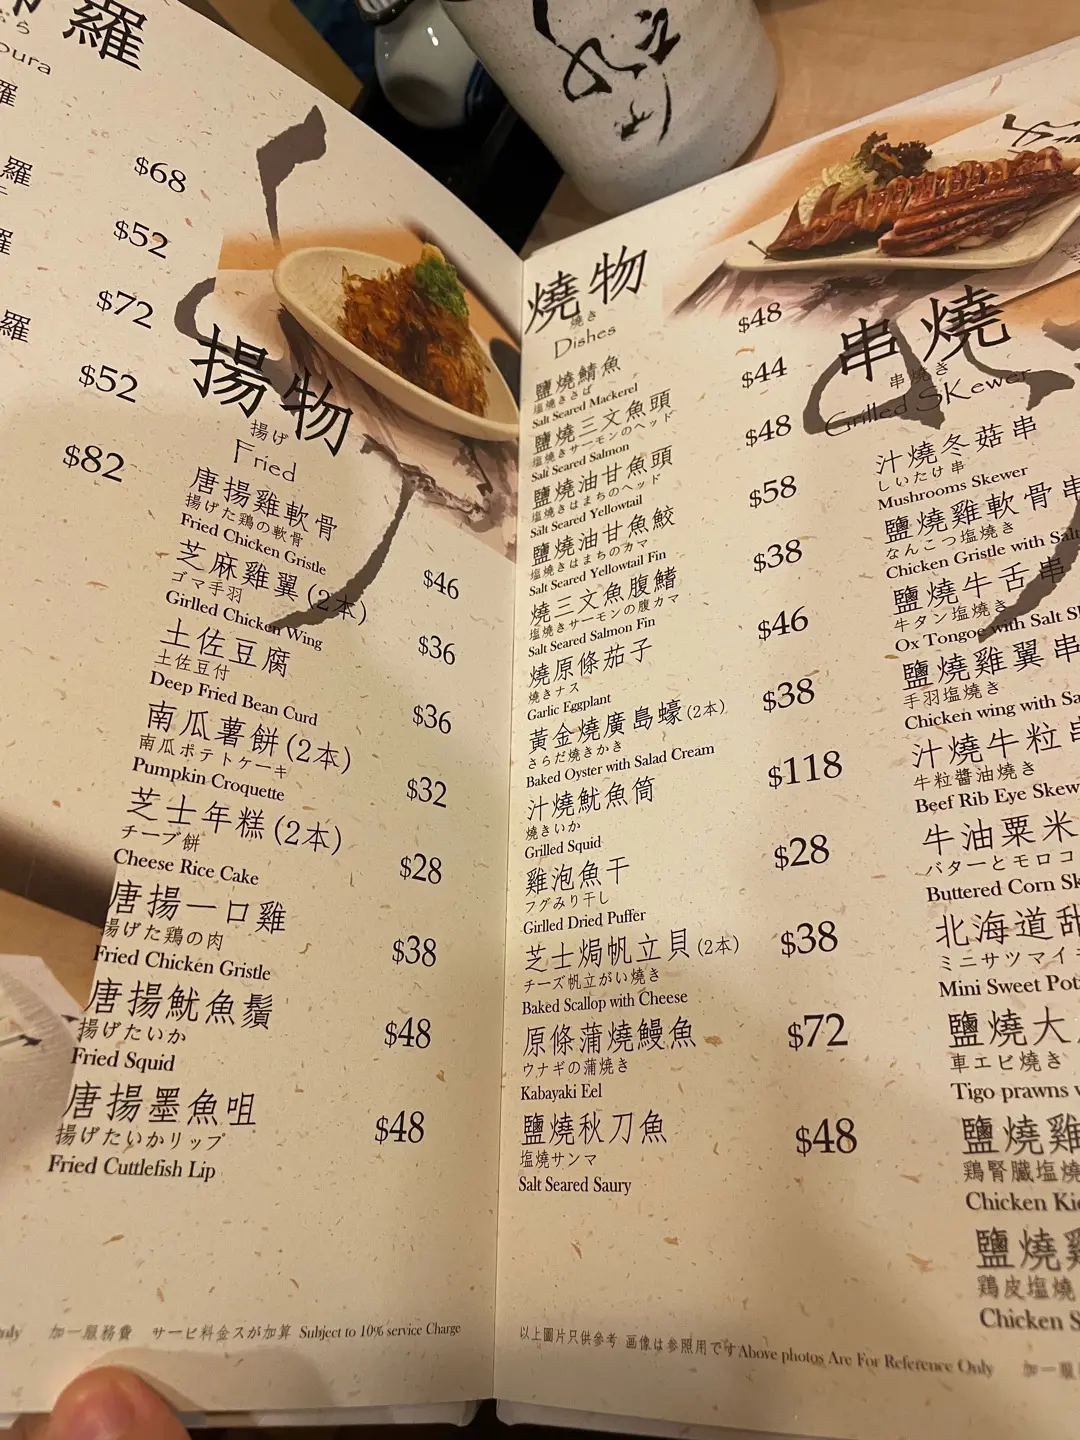 羅
ぷら
羅
$68
羅
$52
羅
$72
羅
$52
$82
揚物
揚げ
Fried
唐揚雞軟骨
揚げた鶏の軟骨
Fried Chicken Gristle
$46
芝麻雞翼(2本)
ゴマ手羽
Girlled Chicken Wing
$36
土佐豆腐
土佐豆付
Deep Fried Bean Curd
$36
南瓜薯餅(2本)
南瓜ポテトケーキ
Pumpkin Croquette
$32
芝士年糕(2本)
チープ餅
Cheese Rice Cake
$28
唐揚一口雞
揚げた鶏の肉
Fried Chicken Gristle
$38
唐揚魷魚鬚
揚げたいか
Fried Squid
$48
唐揚墨魚咀
揚げたいかリップ
Fried Cuttlefish Lip
$48
加一服務費 サービ料金スが加算 Subject to 10% service Charge
燒物
焼き
Dishes
鹽燒鯖魚
塩焼きさば
Salt Seared Mackerel
$48
鹽燒三文魚頭
塩焼きサーモンのヘッド
Salt Seared Salmon
$44
鹽燒油甘魚頭
塩焼きはまちのヘッド
Salt Seared Yellowtail
$48
鹽燒油甘魚鮫
塩焼きはまちのカマ
Salt Seared Yellowtail Fin
$58
燒三文魚腹鰭
塩焼きサーモンの腹カマ
Salt Seared Salmon Fin
$38
燒原條茄子
焼きナス
Garlic Eggplant
$46
黃金燒廣島蠔(2本)
さらだ焼きかき
Baked Oyster with Salad Cream
$38
汁燒魷魚筒
焼きいか
Grilled Squid
$118
雞泡魚干
フグみり干し
Girlled Dried Puffer
$28
芝士焗帆立貝(2本)
チーズ帆立がい焼き
Baked Scallop with Cheese
$38
原條蒲燒鰻魚
ウナギの蒲焼き
Kabayaki Eel
$72
鹽燒秋刀魚
塩焼サンマ
Salt Seared Saury
$48
以上圖片只供參考 画像は参照用です Above photos Are For Reference Only
串燒
串焼き
Grilled SKewer
汁燒冬菇串
しいたけ串
Mushrooms Skewer
鹽燒雞軟骨串
なんこつ塩焼き
Chicken Gristle with Salt
鹽燒牛舌串
牛タン塩焼き
Ox Tongoe with Salt
鹽燒雞翼串
手羽塩焼き
Chicken wing with
汁燒牛粒串
牛粒醬油焼き
Beef Rib Eye
牛油粟米
バターとモロコ
Buttered Corn
北海道甜
ミニサツマイモ
Mini Sweet
鹽燒大
車エビ焼き
Tigo prawns
鹽燒雞
鶏腎臓塩焼
Chicken
鹽燒雞
鶏皮塩焼
Chicken
加一服